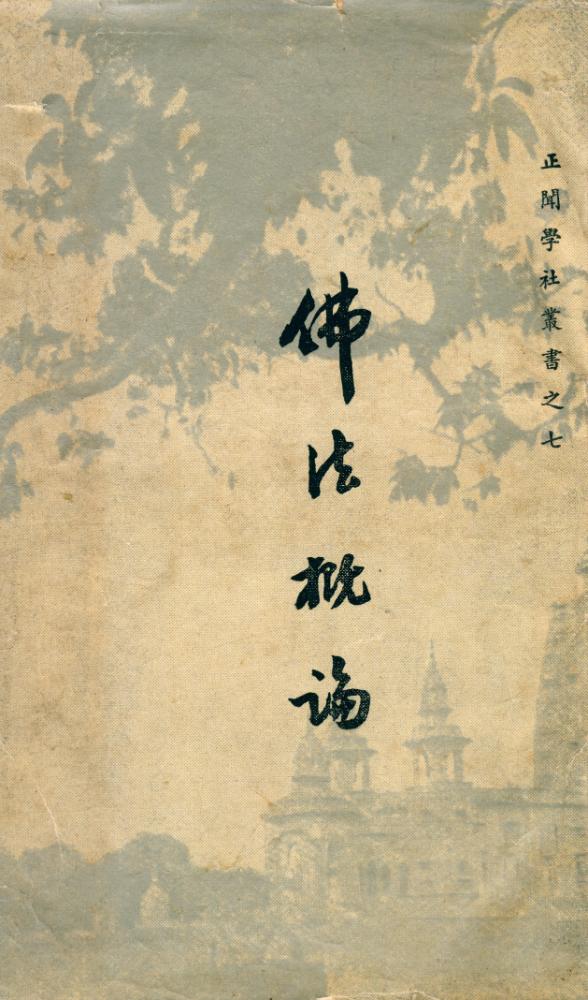 正聞學社叢書之七
佛法概論